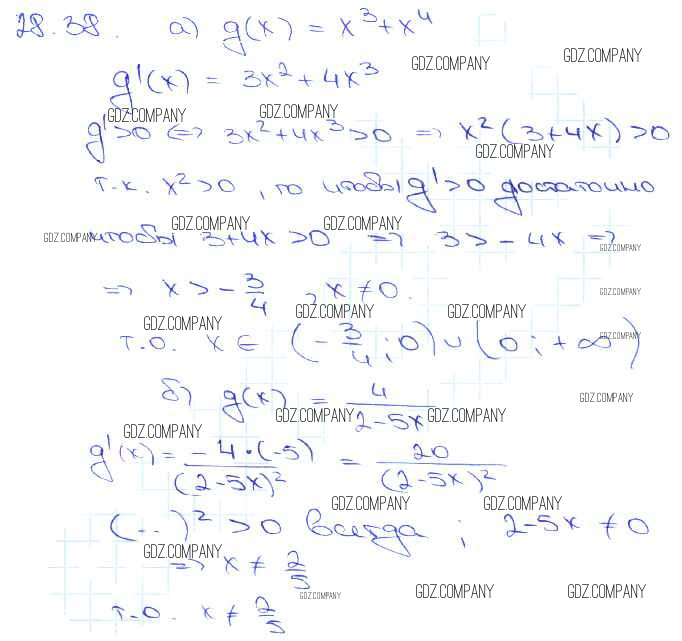 28.38. а) g(x) = x³+x⁴
GDZ.COMPANY GDZ.COMPANY
g'(x) = 3x²+4x³
GDZ.COMPANY GDZ.COMPANY
g'>0 <=> 3x²+4x³>0 => x²(3+4x)>0
GDZ.COMPANY
т.к. x²>0, то чтобы g'>0 достаточно
GDZ.COMPANY GDZ.COMPANY
GDZ.COMPANY чтобы 3+4x>0 => 3>-4x =>
GDZ.COMPANY
=> x>-3/4, x≠0.
GDZ.COMPANY
GDZ.COMPANY GDZ.COMPANY GDZ.COMPANY
т.о. x∈(-3/4;0)∪(0;+∞)
GDZ.COMPANY
б) g(x) = 4/(2-5x)
GDZ.COMPANY
GDZ.COMPANY GDZ.COMPANY
GDZ.COMPANY
g'(x) = -4·(-5)/(2-5x)² = 20/(2-5x)²
GDZ.COMPANY GDZ.COMPANY
(...)²>0 всегда; 2-5x≠0
GDZ.COMPANY
=> x≠2/5
GDZ.COMPANY GDZ.COMPANY GDZ.COMPANY
т.о. x≠2/5